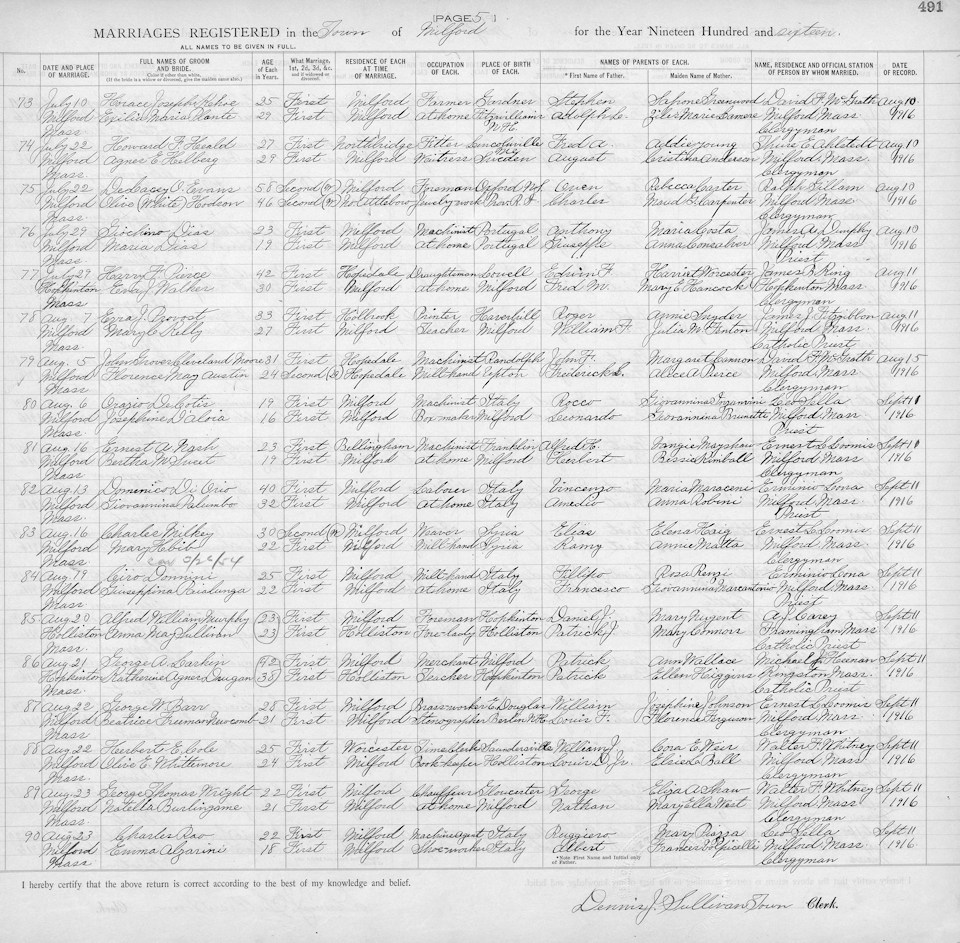 491
[PAGE 5]
MARRIAGES REGISTERED in the Town of Milford for the Year Nineteen Hundred and sixteen.
ALL NAMES TO BE GIVEN IN FULL.
No. DATE AND PLACE OF MARRIAGE. FULL NAMES OF GROOM AND BRIDE. AGE of Each in Years. What Marriage, 1st, 2d, 3d, &c. RESIDENCE OF EACH AT TIME OF MARRIAGE. OCCUPATION OF EACH. PLACE OF BIRTH OF EACH. NAMES OF PARENTS OF EACH. * First Name of Father. Maiden Name of Mother. NAME, RESIDENCE AND OFFICIAL STATION OF PERSON BY WHOM MARRIED. DATE OF RECORD.
73 July 10 Horace Joseph Kehoe 25 First Milford Farmer Gardner Stephen Greenwood David F. McGrath Aug 10
Milford Maria 29 First Milford At home Fitzwilliam Adolph Milford Mass 1916
Mass N.H. Clergyman
74 July 22 Howard F. Herald 27 First Northbridge Fitter Lincolnville Fred A. Addie Young Ahlstedt Aug 10
Milford Agnes E. Helberg 29 First Milford Waitress Sweden August Christina Anderson Milford Mass. 1916
Mass Clergyman
75 July 22 DeLacey O. Evans 58 Second Milford Foreman Oxford Owen Rebecca Carter Ralph Gillam Aug 10
Milford Olive (White) Hodson 46 Second No Attleboro Jewelry work R.I. Charles Maud G. Carpenter Milford Mass 1916
Mass. Clergyman
76 July 29 Dias 23 First Milford Machinist Portugal Anthony Maria Costa James A. Dunphy Aug 10
Milford Maria Dias 19 First Milford At home Portugal Giuseppe Anna Milford Mass 1916
Mass Priest
77 July 29 Harry F. Pierce 42 First Hopedale Draughtsman Lowell Edwin F. Harriet Worcester James B. King Aug 11
Hopkinton Eva J. Walker 30 First Milford At home Milford Fred M. Mary E. Hancock Hopkinton Mass 1916
Mass Clergyman
78 Aug. 7 Ezra J. Provost 33 First Holbrook Printer Haverhill Roger Annie Snyder James J. Fitzgibbon Aug 11
Milford Mary C. Kelly 27 First Milford Teacher Milford William F. Julia M. Fenton Milford Mass. 1916
Mass. Catholic Priest
79 Aug. 5 John Grover Cleveland Moore 31 First Hopedale Machinist Randolph John F. Margaret Cannon David F. McGrath Aug 15
Milford Florence May Austin 24 Second Hopedale Mill hand Upton Frederick L. Alice A. Pierce Milford Mass. 1916
Mass Clergyman
80 Aug. 6 Orazio DeCotis 19 First Milford Machinist Italy Rocco Giovannina Leo Sella Sept 11
Milford Josephine D'Aloia 16 First Milford Milford Leonardo Giovannina Brunetti Milford Mass 1916
Mass Priest
81 Aug. 16 Ernest A. Nash 23 First Bellingham Machinist Franklin Alfred H. Ernest L. Loomis Sept 11
Milford Bertha M. Sweet 19 First Milford At home Milford Herbert Bessie Kimball Milford Mass 1916
Mass. Clergyman
82 Aug. 13 Domenico Di Orio 40 First Milford Laborer Italy Vincenzo Maria Erminio Lona Sept 11
Milford Giovannina Palumbo 32 First Milford At home Italy Amedio Anna Robini Milford Mass 1916
Mass. Priest
83 Aug. 16 Charles Milkey 30 Second Milford Weaver Syria Elias Elena Haig Ernest L. Loomis Sept 11
Milford Mary Ebib 22 First Milford Mill hand Syria Ramy Annie Matta Milford Mass. 1916
Mass Clergyman
84 Aug. 19 Ciro Donnini 25 First Milford Mill hand Italy Fillipo Rosa Renzi Erminio Lona Sept 11
Milford Giuseppina 22 First Milford At home Italy Francesco Giovannina Marcantonio Milford Mass. 1916
Mass. Priest
85 Aug 20 Alfred William Murphy 23 First Milford Foreman Hopkinton Daniel J. Mary Nugent A.J. Carey Sept 11
Holliston Anna May Sullivan 23 First Holliston Fore-lady Holliston Patrick J. Mary Connors Framingham Mass 1916
Mass. Catholic Priest
86 Aug. 21 George A. Larkin 42 First Milford Merchant Milford Patrick Ann Wallace Michael J. Heenan Sept 11
Hopkinton Katherine Agnes Dungan 38 First Holliston Teacher Hopkinton Patrick Ellen Higgins Kingston Mass. 1916
Mass. Catholic Priest
87 Aug. 22 George W. Barr 28 First Milford Brass worker E. Douglas William Josephine Johnson Ernest L. Loomis Sept 11
Milford Beatrice Freeman Newcomb 21 First Milford Stenographer Berlin N.H. Louis F. Florence Ferguson Milford Mass 1916
Mass. Clergyman
88 Aug 22 Herbert E. Cole 25 First Worcester Time Clerk Saundersville William J. Cora E. Weir Walter F. Whitney Sept 11
Milford Olive E. Whittemore 24 First Milford Book-keeper Holliston Louis D. Jr. Elsie La Ball Milford Mass 1916
Mass. Clergyman
89 Aug. 23 George Thomas Wright 22 First Milford Chauffeur Gloucester George Eliza A. Shaw Walter F. Whitney Sept 11
Milford Natella Burlingame 21 First Milford At home Milford Nathan Mary Ella West Milford Mass 1916
Mass Clergyman
90 Aug 23 Charles Rao 22 First Milford Machine Agent Italy Ruggiero Mary Piazza Leo Sella Sept 11
Milford Emma Algarini 18 First Milford Shoe-worker Italy Albert Frances Volpicelli Milford Mass. 1916
Mass Clergyman
*Note First Name and Initial only of Father.
I hereby certify that the above return is correct according to the best of my knowledge and belief.
Dennis J. Sullivan Town Clerk.